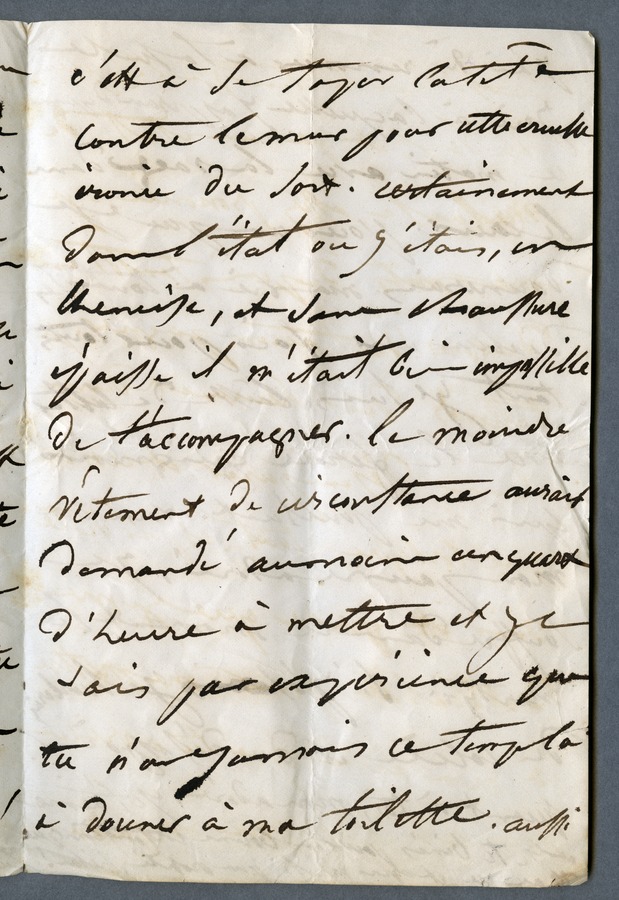 c'est à se taper la tête
contre le mur pour cette cruelle
ironie du sort. certainement
dans l'état ou j'étais, en
chemise, et sans chaussure
épaisse il m'était bien impossible
de t'accompagner. le moindre
vêtement de circonstance aurait
demandé au moins un quart
d'heure à mettre et je
sais par expérience que
tu n'as jamais ce temps là
à donner à ma toilette. aussi